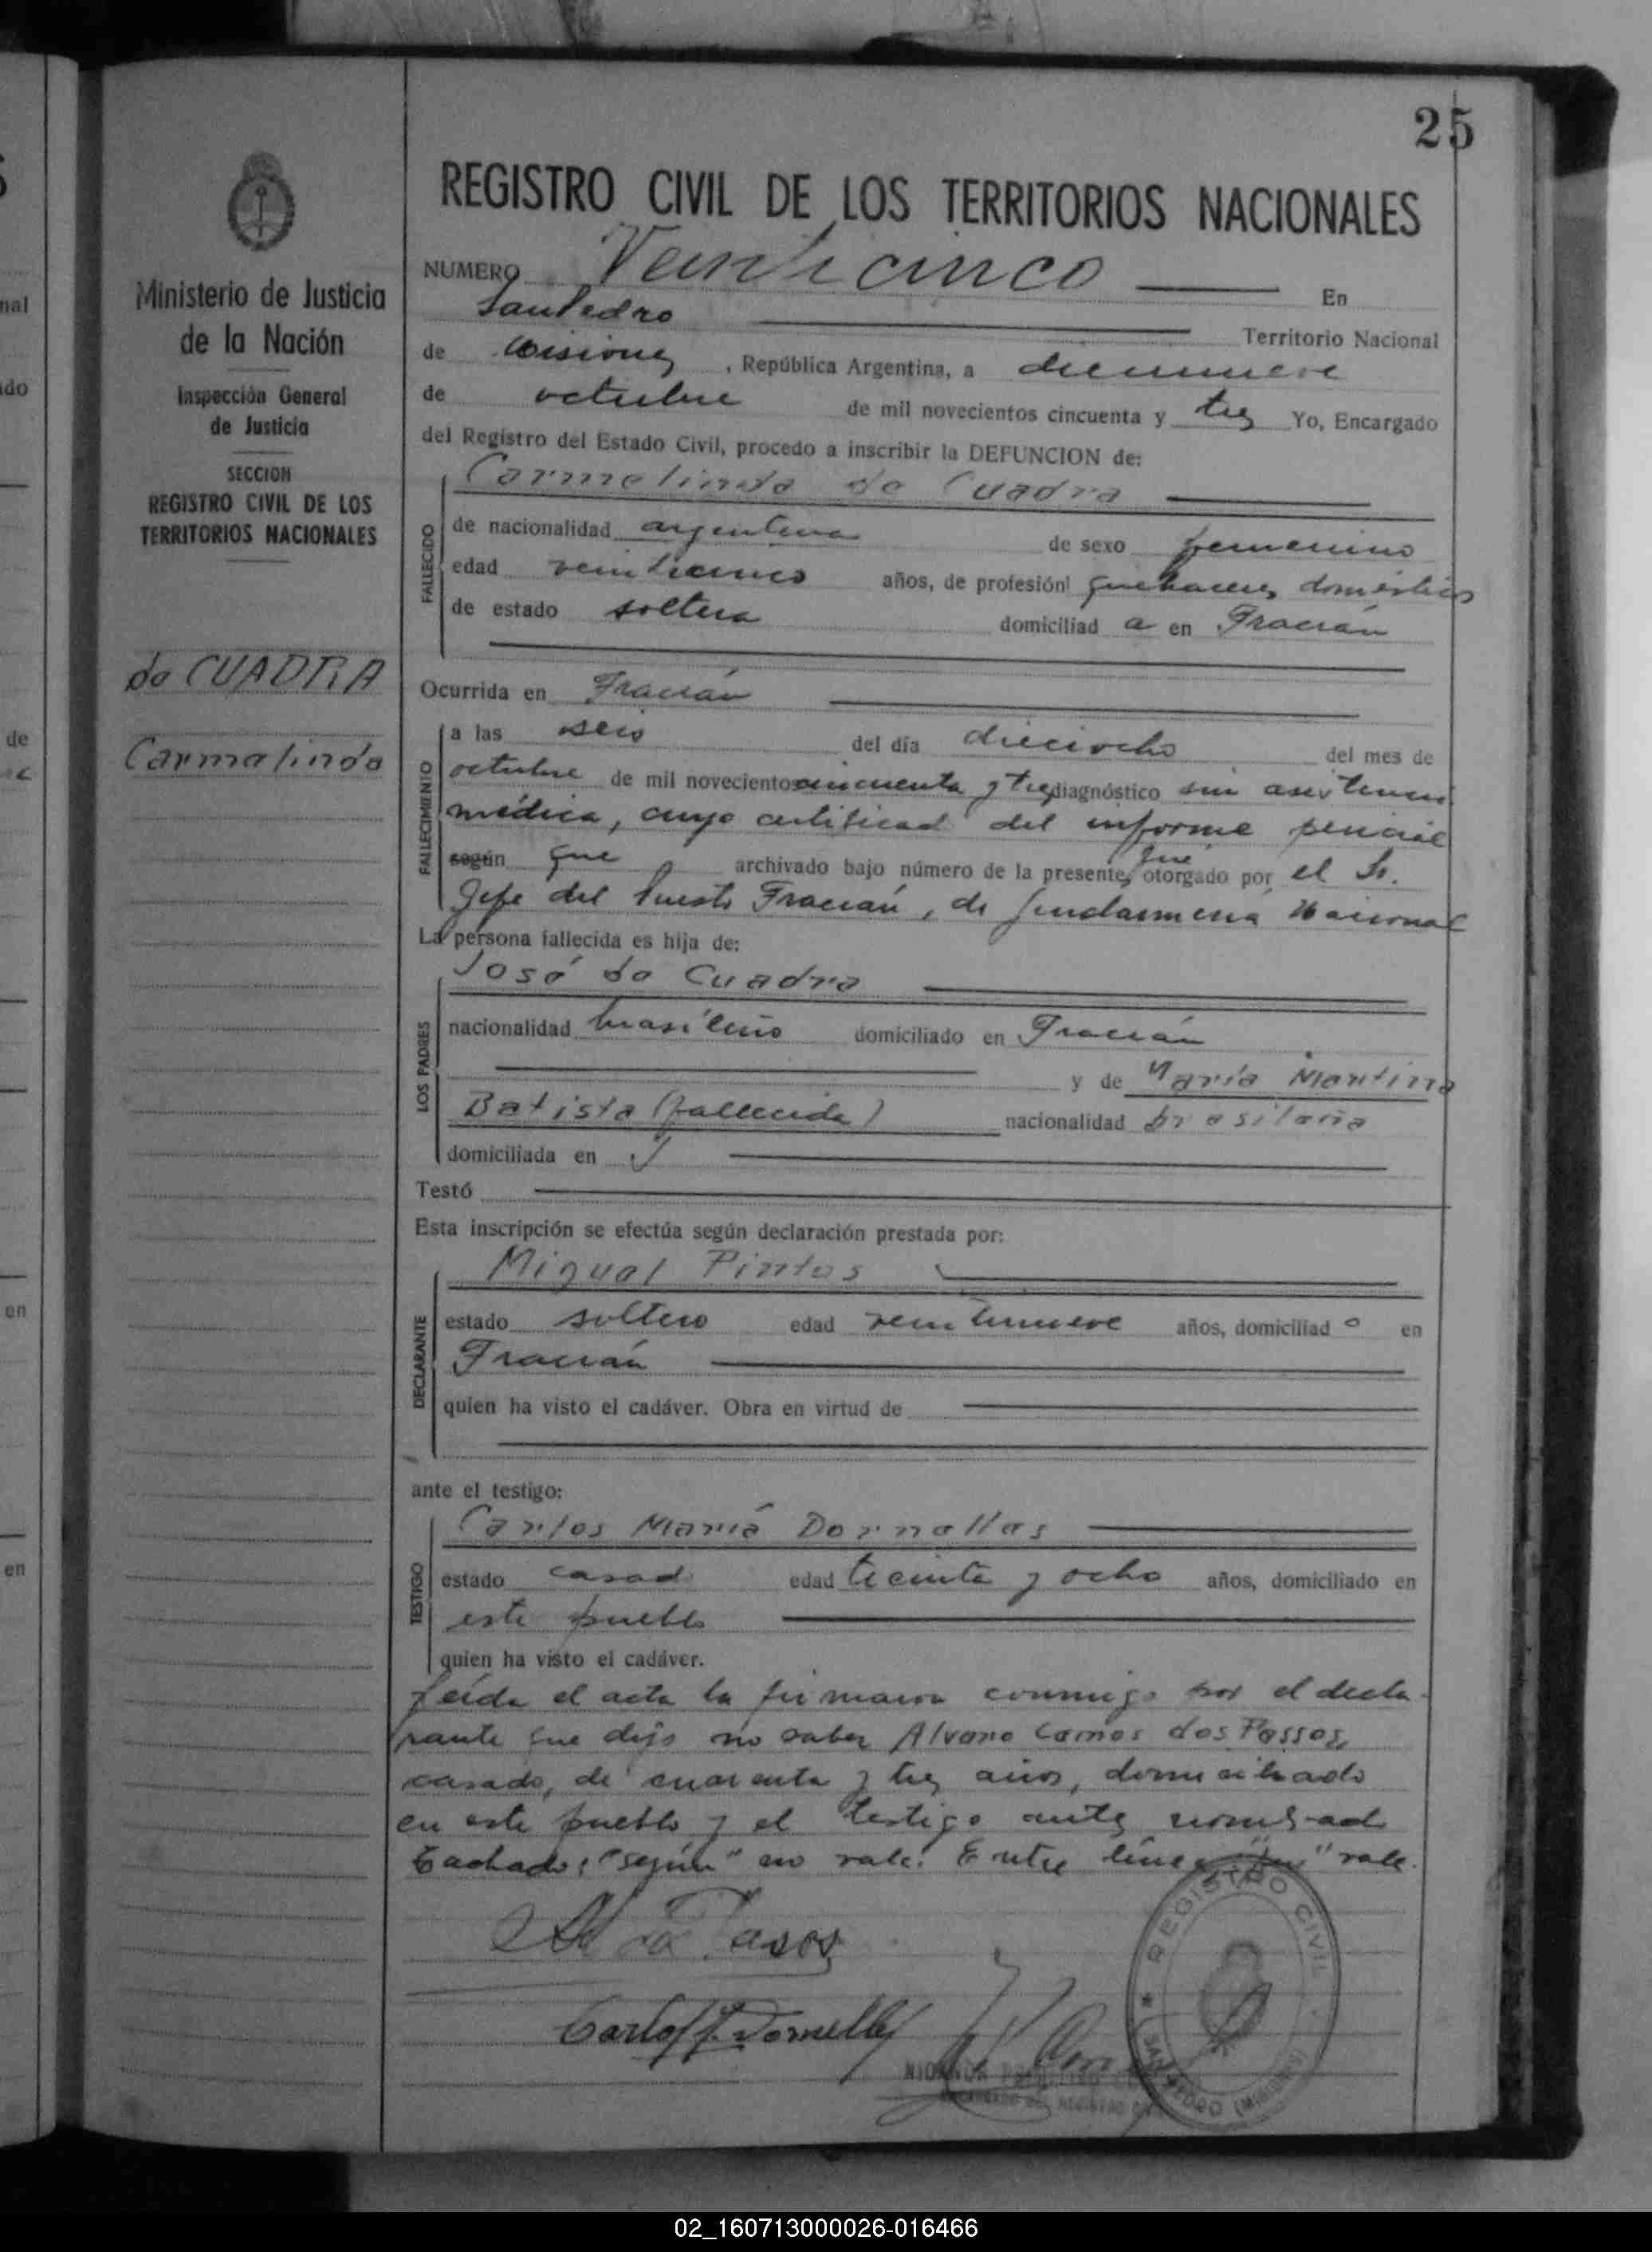 25
REGISTRO CIVIL DE LOS TERRITORIOS NACIONALES
Ministerio de Justicia
de la Nación
Inspección General
de Justicia
SECCION
REGISTRO CIVIL DE LOS
TERRITORIOS NACIONALES
de CUADRA
Carmelinda
NUMERO Veinticinco En
San Pedro Territorio Nacional
de Misiones, República Argentina, a diecinueve
de octubre de mil novecientos cincuenta y tres Yo, Encargado
del Registro del Estado Civil, procedo a inscribir la DEFUNCION de:
Carmelinda de Cuadra
FALLECIDO
de nacionalidad argentina de sexo femenino
edad veinticinco años, de profesión quehaceres domésticos
de estado soltera domiciliad a en Fracrán
Ocurrida en Fracrán
FALLECIMIENTO
a las seis del día dieciocho del mes de
octubre de mil novecientos cincuenta y tres diagnóstico sin asistencia
médica, cuyo certificad del informe pericial
según que archivado bajo número de la presente, fue otorgado por el Sr.
Jefe del Puesto Fracrán, de Gendarmería Nacional
La persona fallecida es hija de:
José de Cuadra
LOS PADRES
nacionalidad brasileño domiciliado en Fracrán
y de María Mantina
Batista (fallecida) nacionalidad brasileña
domiciliada en
Testó
Esta inscripción se efectúa según declaración prestada por:
Miguel Pintos
DECLARANTE
estado soltero edad veintinueve años, domiciliad o en
Fracrán
quien ha visto el cadáver. Obra en virtud de
ante el testigo:
Carlos María Dornelles
TESTIGO
estado casad edad treinta y ocho años, domiciliado en
este pueblo
quien ha visto el cadáver.
Leída el acta la firmaron conmigo por el decla-
rante que dijo no saber Alvaro Camos dos Passos,
casado, de cuarenta y tres años, domiciliado
en este pueblo y el testigo antes nombrad
Tachado: "según" no vale. Entre línea vale.
Carlos Dornelles
REGISTRO CIVIL
SAN PEDRO (Misiones)
ENCARGADO DEL REGISTRO
02_160713000026-016466